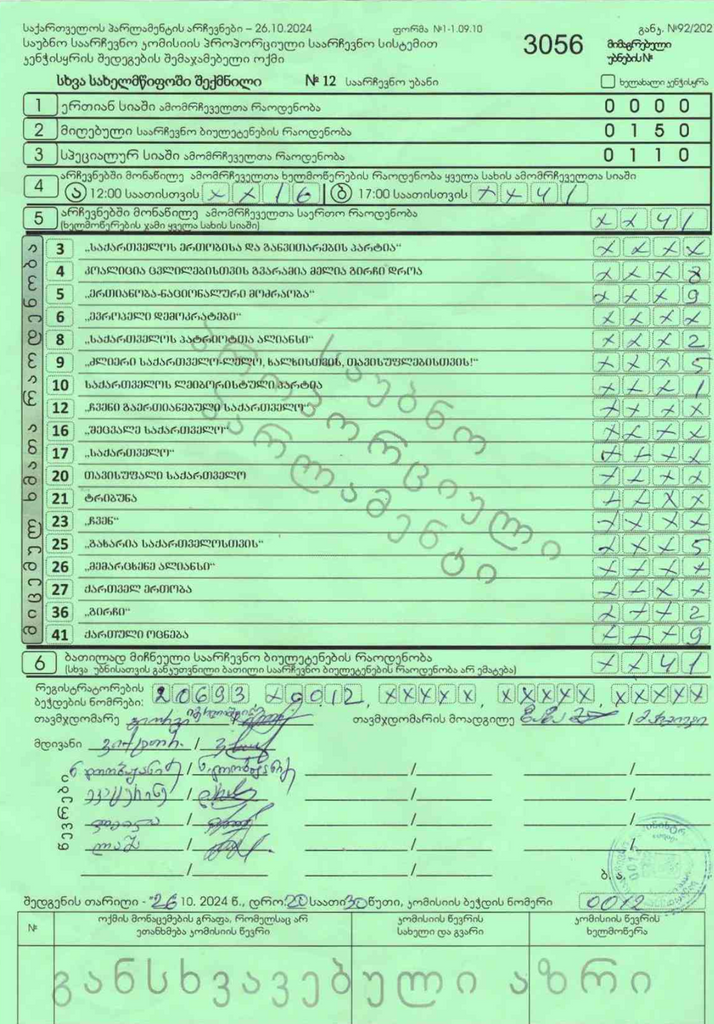 საქართველოს პარლამენტის არჩევნები – 26.10.2024 ფორმა №1-1.09.10 განკ. №92/202
საუბნო საარჩევნო კომისიის პროპორციული საარჩევნო სისტემით 3056 მიმაგრებული
კენჭისყრის შედეგების შემაჯამებელი ოქმი უბნების №
სხვა სახელმწიფოში შექმნილი № 12 საარჩევნო უბანი ხელახალი კენჭისყრა
1 ერთიან სიაში ამომრჩეველთა რაოდენობა 0 0 0 0
2 მიღებული საარჩევნო ბიულეტენების რაოდენობა 0 1 5 0
3 სპეციალურ სიაში ამომრჩეველთა რაოდენობა 0 1 1 0
4 არჩევნებში მონაწილე ამომრჩეველთა ხელმოწერების რაოდენობა ყველა სახის ამომრჩეველთა სიაში
ა 12:00 საათისთვის X X 1 6 ბ 17:00 საათისთვის X X 4 1
5 არჩევნებში მონაწილე ამომრჩეველთა საერთო რაოდენობა X X 4 1
(ხელმოწერების ჯამი ყველა სახის სიაში)
მიცემულ ხმათა რაოდენობა
3 „საქართველოს ერთობისა და განვითარების პარტია“ X X X X
4 კოალიცია ცვლილებისთვის გვარამია მელია გირჩი დროა X X X 8
5 „ერთიანობა-ნაციონალური მოძრაობა“ X X X 9
6 „ევროპული დემოკრატები“ X X X X
8 „საქართველოს პატრიოტთა ალიანსი“ X X X 2
9 „ძლიერი საქართველო-ლელო, ხალხისთვის, თავისუფლებისთვის!“ X X X 5
10 საქართველოს ლეიბორისტული პარტია X X X 1
12 „ჩვენი გაერთიანებული საქართველო“ X X X X
16 „შეცვალე საქართველო“ X X X X
17 „საქართველო“ X X X X
20 თავისუფალი საქართველო X X X X
21 ტრიბუნა X X X X
23 „ჩვენ“ X X X X
25 „გახარია საქართველოსთვის“ X X X 5
26 „მემარცხენე ალიანსი“ X X X X
27 ქართველ ერთობა X X X X
36 „გირჩი“ X X X 2
41 ქართული ოცნება X X X 9
საუბნო
პროპორციული
პარლამენტი
6 ბათილად მიჩნეული საარჩევნო ბიულეტენების რაოდენობა X X 4 1
(სხვა უბნისათვის განკუთვნილი ბათილი საარჩევნო ბიულეტენების რაოდენობა არ ემატება)
რეგისტრატორების
ბეჭდების ნომრები: 20693 X9012, XXXXX, XXXXX, XXXXX
თავმჯდომარე / თავმჯდომარის მოადგილე /
მდივანი /
წევრები
ბ. ა.
შედგენის თარიღი - 26 10. 2024 წ., დრო: 20 საათი 30 წუთი, კომისიის ბეჭდის ნომერი 0012
№ ოქმის მონაცემების გრაფა, რომელსაც არ ეთანხმება კომისიის წევრი კომისიის წევრის სახელი და გვარი კომისიის წევრის ხელმოწერა
განსხვავებული აზრი